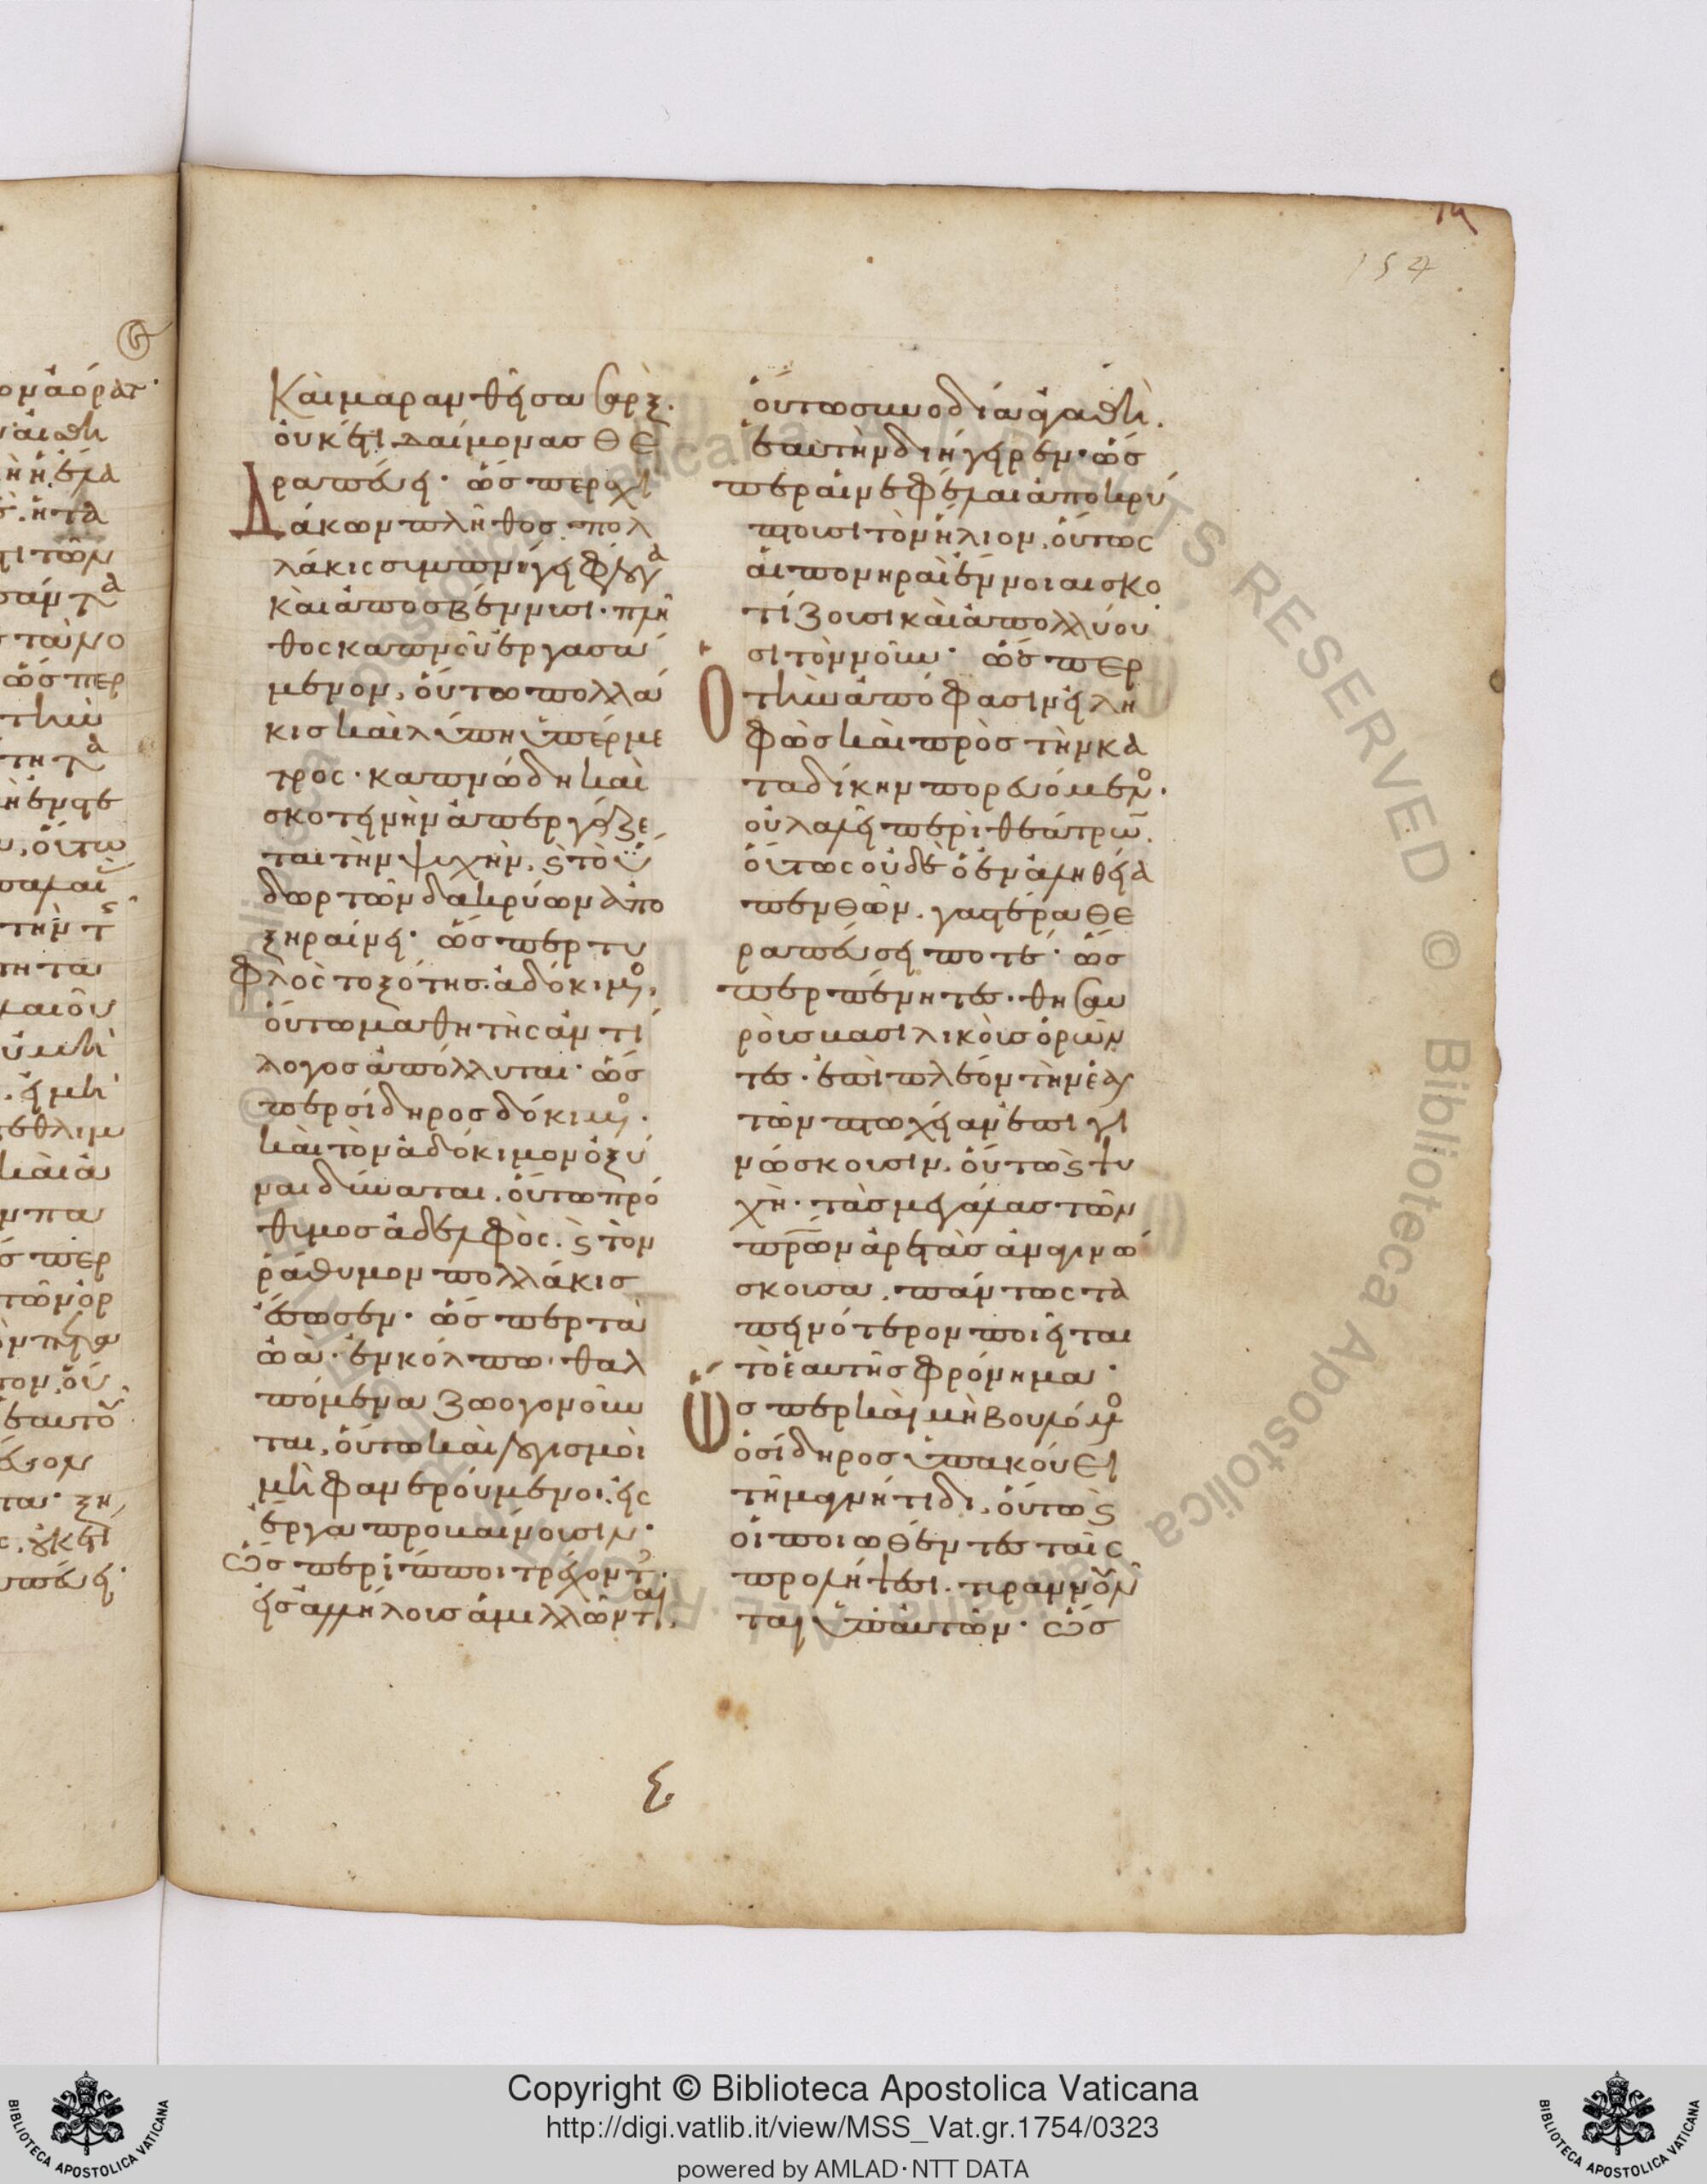 154
Καὶ μαρανθεῖσα σὰρξ.
οὐκέτι δαίμονας θε
ραπεύει· ὥσπερ χλ
Δάκων πλῆθος πολ
λάκις συμπνίγει φλόγα
καὶ ἀποσβέννυσι· πλῆ
θος καπνοῦ ἐργασά
μενον, οὕτω πολλά
κις καὶ λύπη ὑπέρμε
τρος· καπνώδη καὶ
σκοτεινὴν ἀπεργάζε
ται τὴν ψυχὴν, ϛ τὸ ὕ
δωρ τῶν δακρύων ἀπο
ξηραίνει· ὥσπερ τυ
φλὸς τοξότης ἀδόκιμος,
οὕτω μαθητὴς ἀντί
λογος ἀπόλλυται· ὥσ
περ σίδηρος δόκιμος.
καὶ τὸν ἀδόκιμον ὀξύ
ναι δύναται, οὕτω πρό
θυμος ἀδελφὸς. ϛ τὸν
ῥάθυμον πολλάκις
ἔσωσεν· ὥσπερ τὰ
ὠὰ· ἐν κόλπω· θαλ
πόμενα ζωογονοῦν
ται, οὕτω καὶ λογισμοὶ
μὴ φανερούμενοι· εἰς
ἔργα προβαίνουσιν·
ὥσπερ ἵπποι τρέχοντες.
εἰς ἀλλήλους ἁμιλλῶνται,
οὕτω συνοδία ἀγαθὴ.
ἑαυτὴν διήγειρεν· ὥσ
περ αἱ νεφέλαι ἀποκρύ
πτουσι τὸν ἥλιον, οὕτως
αἱ πονηραὶ ἔννοιαι σκο
τίζουσι καὶ ἀπολλύου
σι τὸν νοῦν· ὥσπερ
Ο τὴν ἀπόφασιν εἰλη
φὼς καὶ πρὸς τὴν κα
ταδίκην πορευόμενος.
οὐ λαλεῖ περὶ θεάτρων.
οὕτως οὐδὲ ὁ ἐν ἀληθεία
πενθῶν. γαστέρα θε
ραπεύσει ποτέ· ὥσ
περ πένητες. θησαυ
ροὺς βασιλικοὺς ὁρῶν
τες. ἐπὶ πλέον τὴν ἑαυ
τῶν πτωχείαν ἐπιγι
νώσκουσιν, οὕτως ψυ
χὴ· τὰς μεγάλας τῶν
πρων ἀρετὰς ἀναγινώ
σκουσα, πάντως τα
πεινότερον ποιεῖται
τὸ ἑαυτῆς φρόνημα·
Ωσπερ καὶ μὴ βουλόμενος
ὁ σίδηρος ὑπακούει
τῆ μαγνήτιδι, οὕτως
οἱ ποιωθέντες ταῖς
προλήψεσι. τυραννοῦν
ται ὑπ' αὐτῶν· ὥσ
Copyright © Biblioteca Apostolica Vaticana
http://digi.vatlib.it/view/MSS_Vat.gr.1754/0323
powered by AMLAD·NTT DATA
BIBLIOTECA APOSTOLICA VATICANA
BIBLIOTECA APOSTOLICA VATICANA